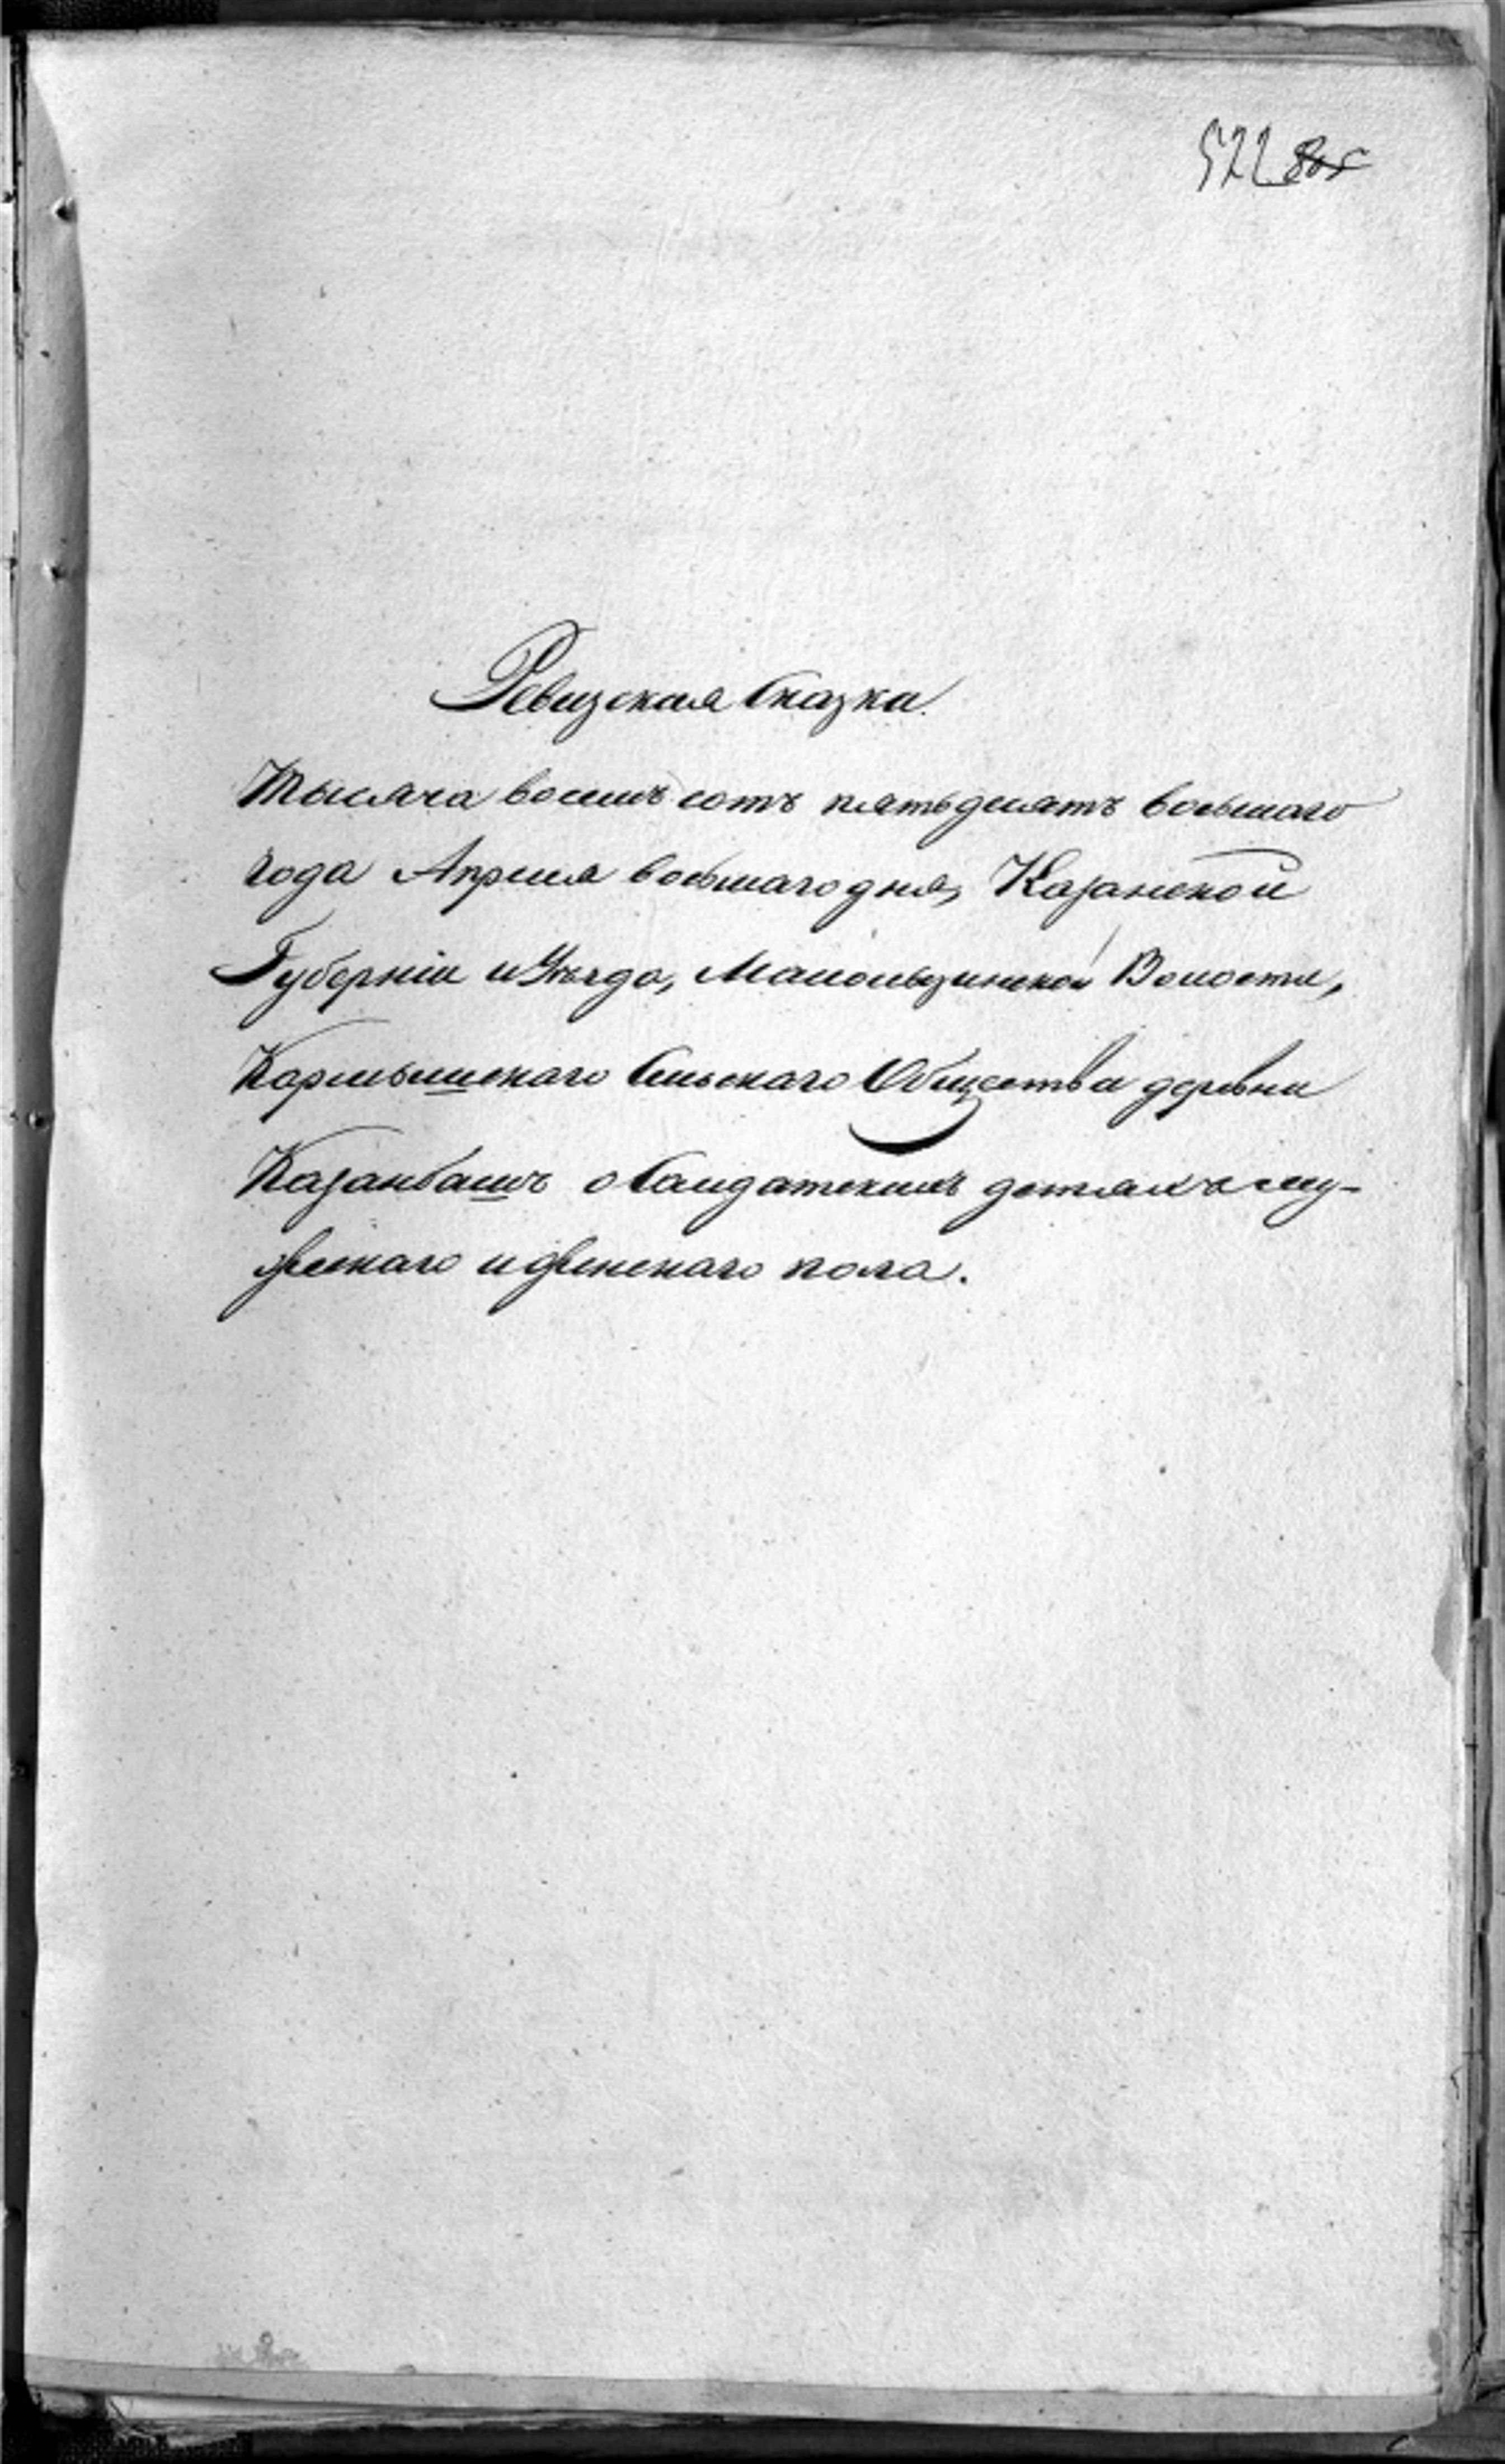 522
Ревизская Сказка.
Тысяча восемь сотъ пятьдесятъ восьмаго
года Апреля восьмаго дня, Казанской
Губерніи и Уѣзда, Мамользинской Волости,
Кармышскаго Сельскаго Общества деревни
Казанбашъ о Салдатскихъ детяхъ му-
жескаго и женскаго пола.